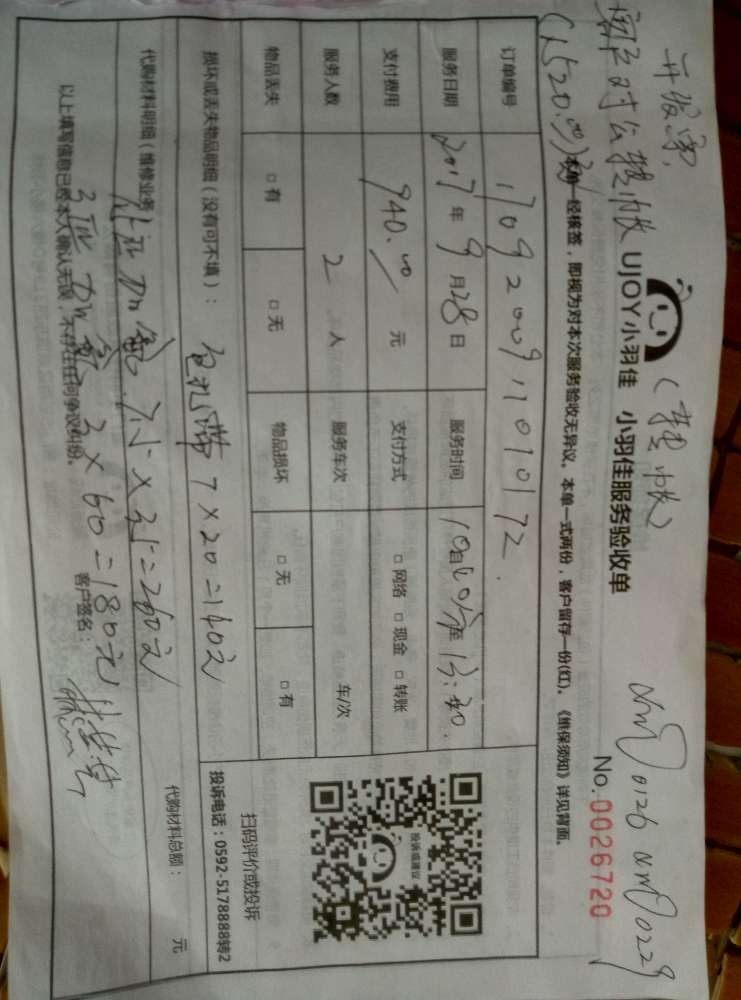 开发票
对公转帐
(转帐)
(1520.00)元
UJOY小羽佳 小羽佳服务验收单
No.0026720
0126 0229
本单一经核签，即视为对本次服务验收无异议。本单一式两份，客户留存一份(红)。《维保须知》详见背面。
订单编号 1709200911010172
服务日期 2017年9月28日 服务时间
支付费用 940.00元 支付方式 □网络 □现金 □转账
服务人数 2人 服务车次 车/次
物品丢失 □有 □无 物品损坏 □无 □有
投诉或建议
扫码评价或投诉
投诉电话：0592-5178888转2
损坏或丢失物品明细（没有可不填）：
7×20=140元
代购材料明细（维修业务
代购材料总额： 元
3×60=180元
以上填写信息已经本人确认无误，不存在任何争议纠纷。 客户签名：